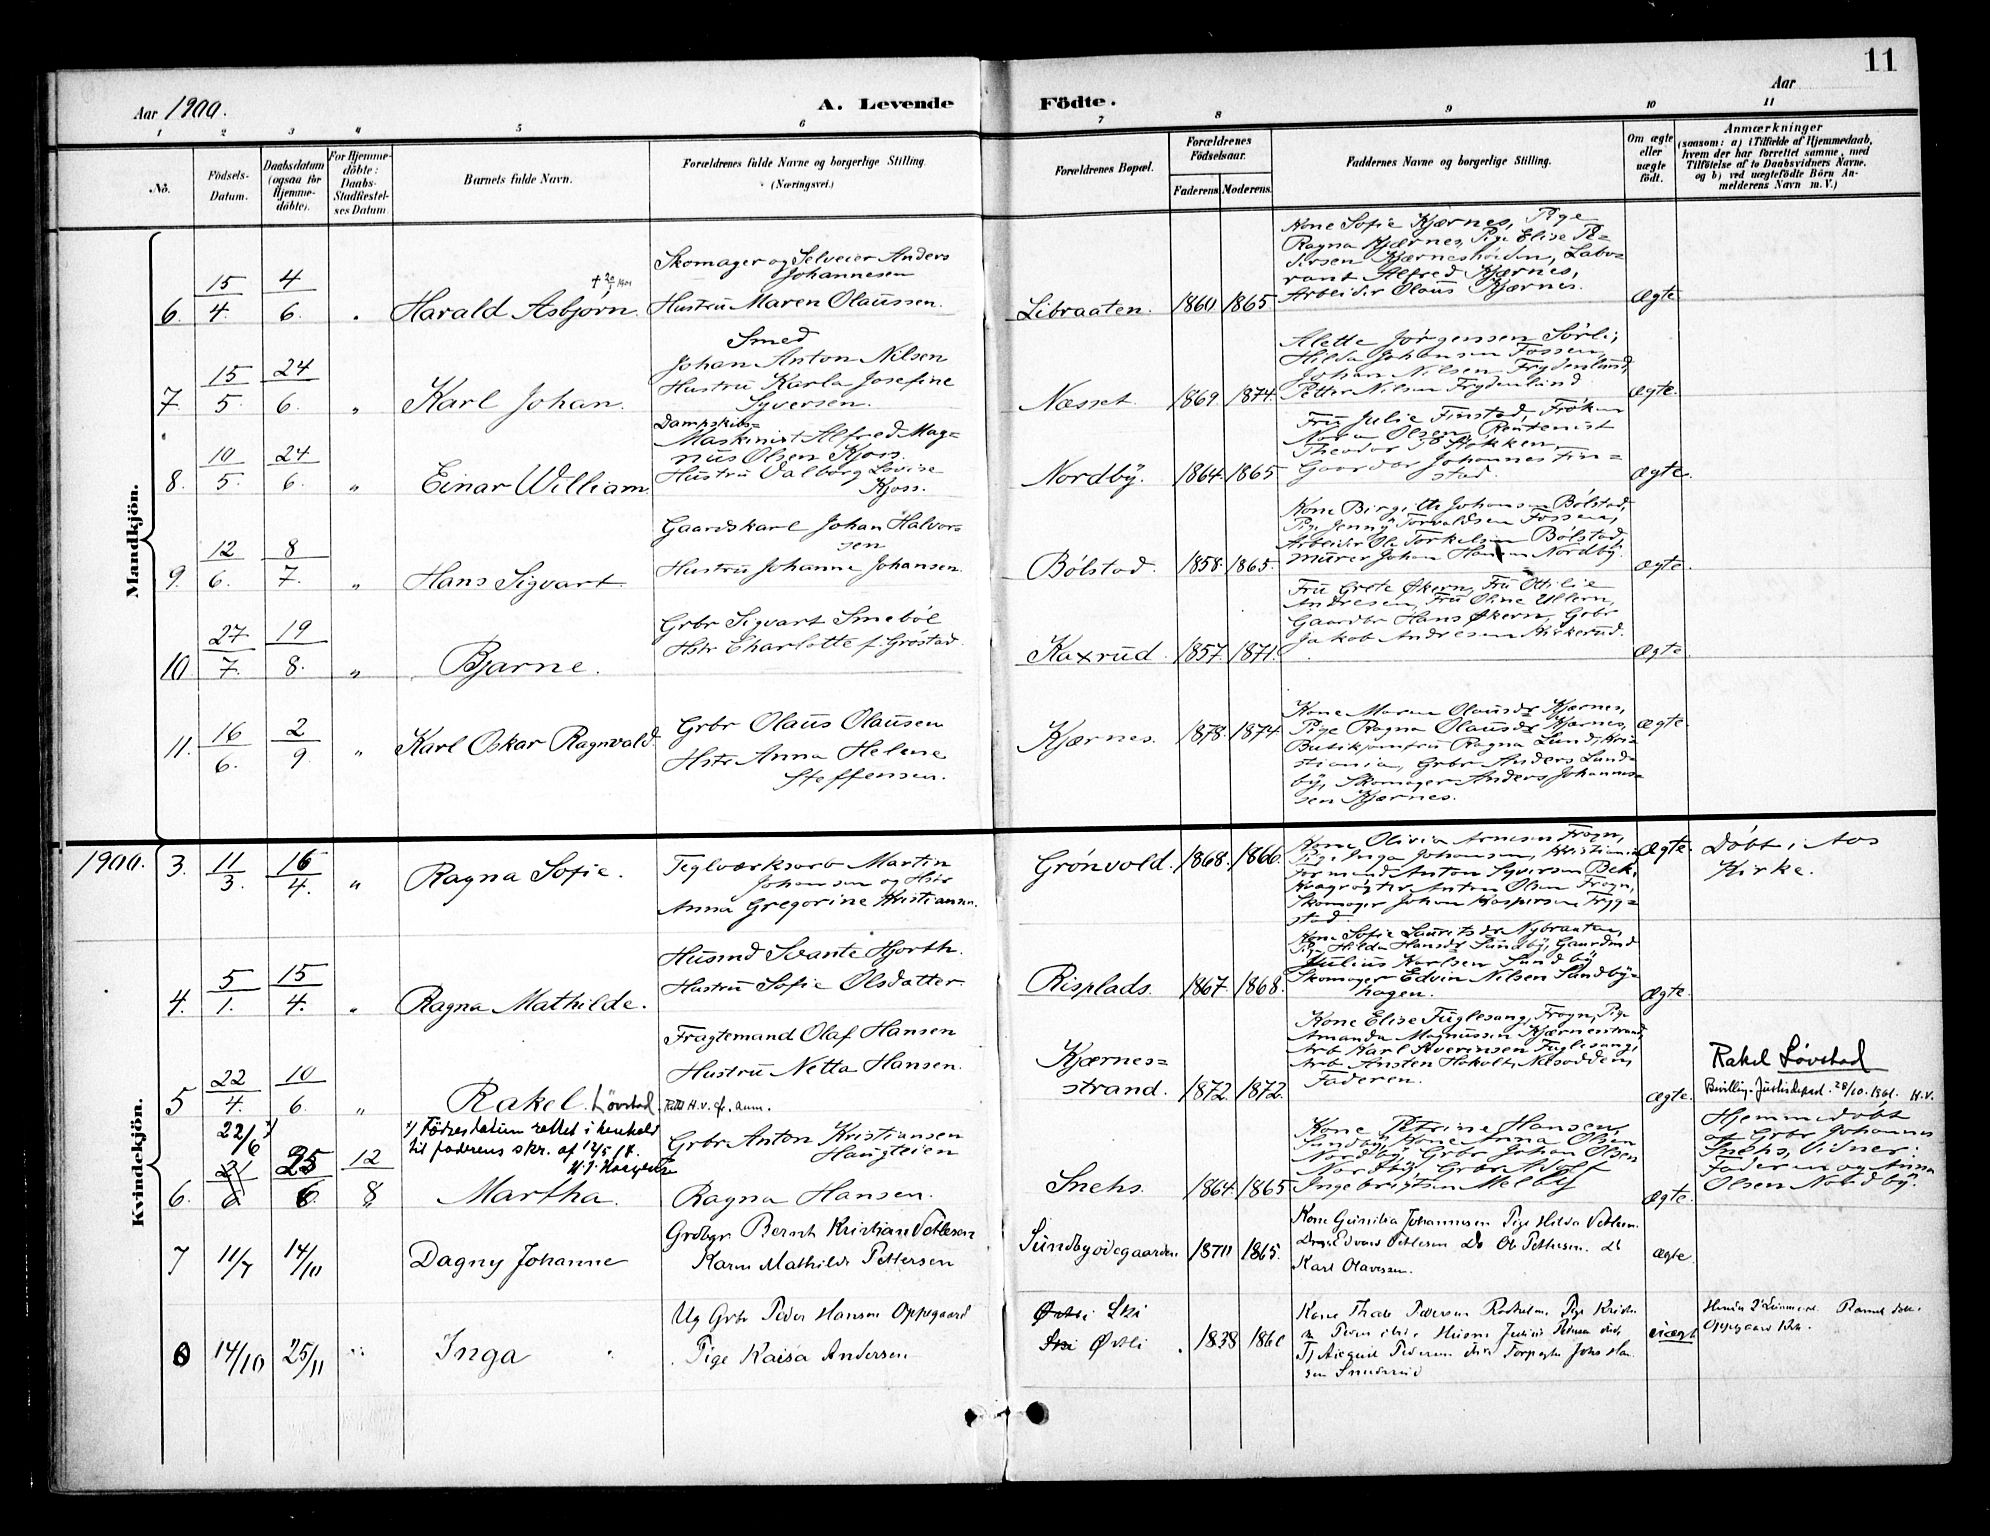 11
Aar 1900.
A. Levende
Födte.
Aar
1 2 3 4 5 6 7 8 9 10 11
No.
Födsels-
Datum.
Daabsdatum
(ogsaa for
Hjemme-
döbte).
For Hjemme-
döbte:
Daabs-
Stadfæstel-
ses Datum.
Barnets fulde Navn.
Forældrenes fulde Navne og borgerlige Stilling.
(Næringsvei.)
Forældrenes Bopæl.
Forældrenes
Födselsaar.
Faderens.
Moderens.
Faddernes Navne og borgerlige Stilling.
Om ægte
eller
uægte
födt.
Anmærkninger
(saasom: a) i Tilfælde af Hjemmedaab,
hvem der har forrettet samme, med
Tilföielse af to Daabsvidners Navne.
og b) ved uægtefödte Börn An-
melderens Navn m. V.)
Mandkjön.
6. 15/4. 4/6. Harald Asbjørn.
Skomager og Selveier Anders
Johannesen
Hustru Maren Olaussen.
Libraaten. 1860 1865
Kone Sofie Kjærnes, Pige
Ragna Kjærnes, Pige Elise Pe-
tersen Kjærneshøiden, Labo-
rant Alfred Kjærnes,
Arbeider Olaus Kjærnes.
Ægte
7. 15/5 24/6. „ Karl Johan.
Smed
Johan Anton Nilsen
Hustru Karla Josefine
Syversen.
Næsset. 1869. 1874.
Alette Jørgensen Sørli,
Hilda Johansen Fossen,
Johan Nilsen Frydenlund,
Petter Nilsen Frydenlund
Ægte.
8. 10/5. 24/6. „ Einar William.
Dampskibs-
Maskinist Alfred Mag-
nus Olsen Kjoss.
Hustru Valborg Lovise
Kjoss.
Nordby. 1864. 1865
Fru Julie Finstad, Frøken
Nora Olsen, Rentenist
Theodor Stokken,
Gaardbr Johannes Fin-
stad.
Ægte.
9. 12/6. 8/7. „ Hans Sigvart
Gaardskarl Johan Halvor-
sen
Hustru Johanne Johansen.
Bølstad. 1858. 1865
Kone Birgitte Johansen Bølstad,
Pige Jenny Torvaldsen Fossen,
Arbeider Ole Torkelsen Bølstad,
Murer Johan Hansen Nordby.
Ægte
10 27/7. 19/8. „ Bjarne.
Grbr Sigvart Smebøl
Hstr Charlotte f. Grøstad.
Kaxrud. 1857. 1871.
Fru Grete Økern, Fru Ottilie
Andresen, Fru Oline Ullern,
Gaardbr Hans Økern, Grbr
Jakob Andresen Kirkerud.
Ægte
11. 16/6. 2/9. „ Karl Oskar Ragnvald.
Grbr Olaus Olausen
Hstr Anna Helene
Steffensen.
Kjærnes. 1878. 1874
Kone Maren Olausdr Kjærnes,
Pige Ragna Olausdr Kjærnes,
Butikjomfru Ragna Lund, Kris-
tiania, Grbr Anders Sund-
by, Skomager Anders Johannes-
sen Kjærnes.
Ægte
Kvindekjön.
1900. 3. 11/3. 16/4. „ Ragna Sofie.
Teglværksarb Martin
Johansen og Hstr
Anna Gregorine Kristianne.
Grønvold. 1868. 1866.
Kone Olivia Arnesen Frogn,
Pige Inga Johansen, Kristiania
Formand Anton Syversen Bek,
Anton Olsen Frogn,
Skomager Johan Kaspersen Frygg-
stad.
Ægte.
Døbt i Aas
Kirke.
4. 5/1. 15/4. „ Ragna Mathilde.
Husmd Svante Hjorth.
Hustru Sofie Olsdatter.
Risplads. 1867. 1868.
Kone Sofie Lauritsdr Nybraaten,
Pige Hilda Hansdr Sundby, Gaardmd
Julius Karlsen Sundby
Skomager Edvin Nilsen Sundby-
hagen.
Ægte.
5 22/4. 10/6. „ Rakel. Løvstad.
Fragtemand Olaf Hansen
Hustru Netta Hansen.
Rettet H.V. cfr. anm.
Kjærnes-
strand. 1872. 1872.
Kone Elise Fuglesang, Frogn, Pige
Amanda Magnussen Kjærnesstrand,
Arb Karl Syverinsen Fuglesang,
Arb Ansten Hakolt, Nesodden,
Faderen.
Ægte.
Rakel Løvstad
Bevilling. Justisdepad. 28/10. 1961. H.V.
6. 22/6 1) 21/6 25/6. 12/8 „ Martha.
1) Fødselsdatum rettet i henhold
til faderens skr. af 12/5 17.
Grbr Anton Kristiansen
Haugteien
Ragna Hansen.
Snehs. 1864. 1865
Kone Petrine Hansen,
Sundby, Kone Anna Olsen
Nordby, Grbr Johan Olsen
Nordby, Grbr Adolf
Ingebrigtsen Melby
Ægte.
Hjemmedøbt
af Grbr Johannes
Snehs, Vidner:
Faderen og Anna
Olsen Nordby.
7 11/7 14/10 Dagny Johanne
Grdbgr Bernt Kristian Vetlesen
Karen Mathilde Pettersen
Sundbyødegaarden 1870 1865.
Kone Gunilia Johannesen Pige Hilda Vetlesen.
Edvard Vetlesen Do Ole Pettersen. Do
Karl Olavesen.
ægte
8 14/10 25/11 „ Inga
Ug Grbr Peder Hansen Oppegaard
Pige Kaisa Andersen
Østli Ski
Ski Østli 1838 1860
uægte
Smedsrud
Oppegaard